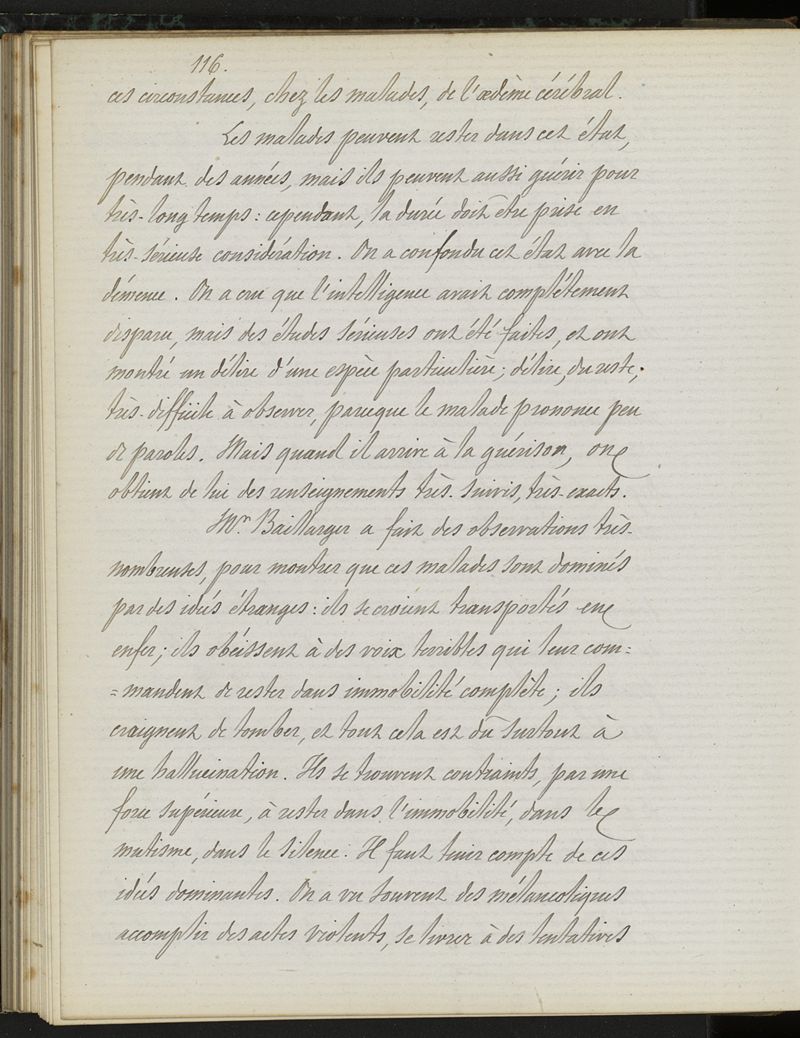 116.
ces circonstances, chez les malades, de l'œdème cérébral.
Les malades peuvent rester dans cet état,
pendant des années, mais ils peuvent aussi guérir pour
très-longtemps : cependant, la durée doit être prise en
très-sérieuse considération. On a confondu cet état avec la
démence. On a cru que l'intelligence avait complétement
disparu, mais des études sérieuses ont été faites, et ont
montré un délire d'une espèce particulière ; délire, du reste,
très-difficile à observer, parceque le malade prononce peu
de paroles. Mais quand il arrive à la guérison, on
obtient de lui des renseignements très-suivis, très-exacts.
Mr. Baillarger a fait des observations très-
nombreuses, pour montrer que ces malades sont dominés
par des idées étranges : ils se croient transportés en
enfer ; ils obéissent à des voix terribles qui leur com=
=mandent de rester dans immobilité complète ; ils
craignent de tomber, et tout cela est dû surtout à
une hallucination. Ils se trouvent contraints, par une
force supérieure, à rester dans l'immobilité, dans le
mutisme, dans le silence. Il faut tenir compte de ces
idées dominantes. On a vu souvent des mélancoliques
accomplir des actes violents, se livrer à des tentatives